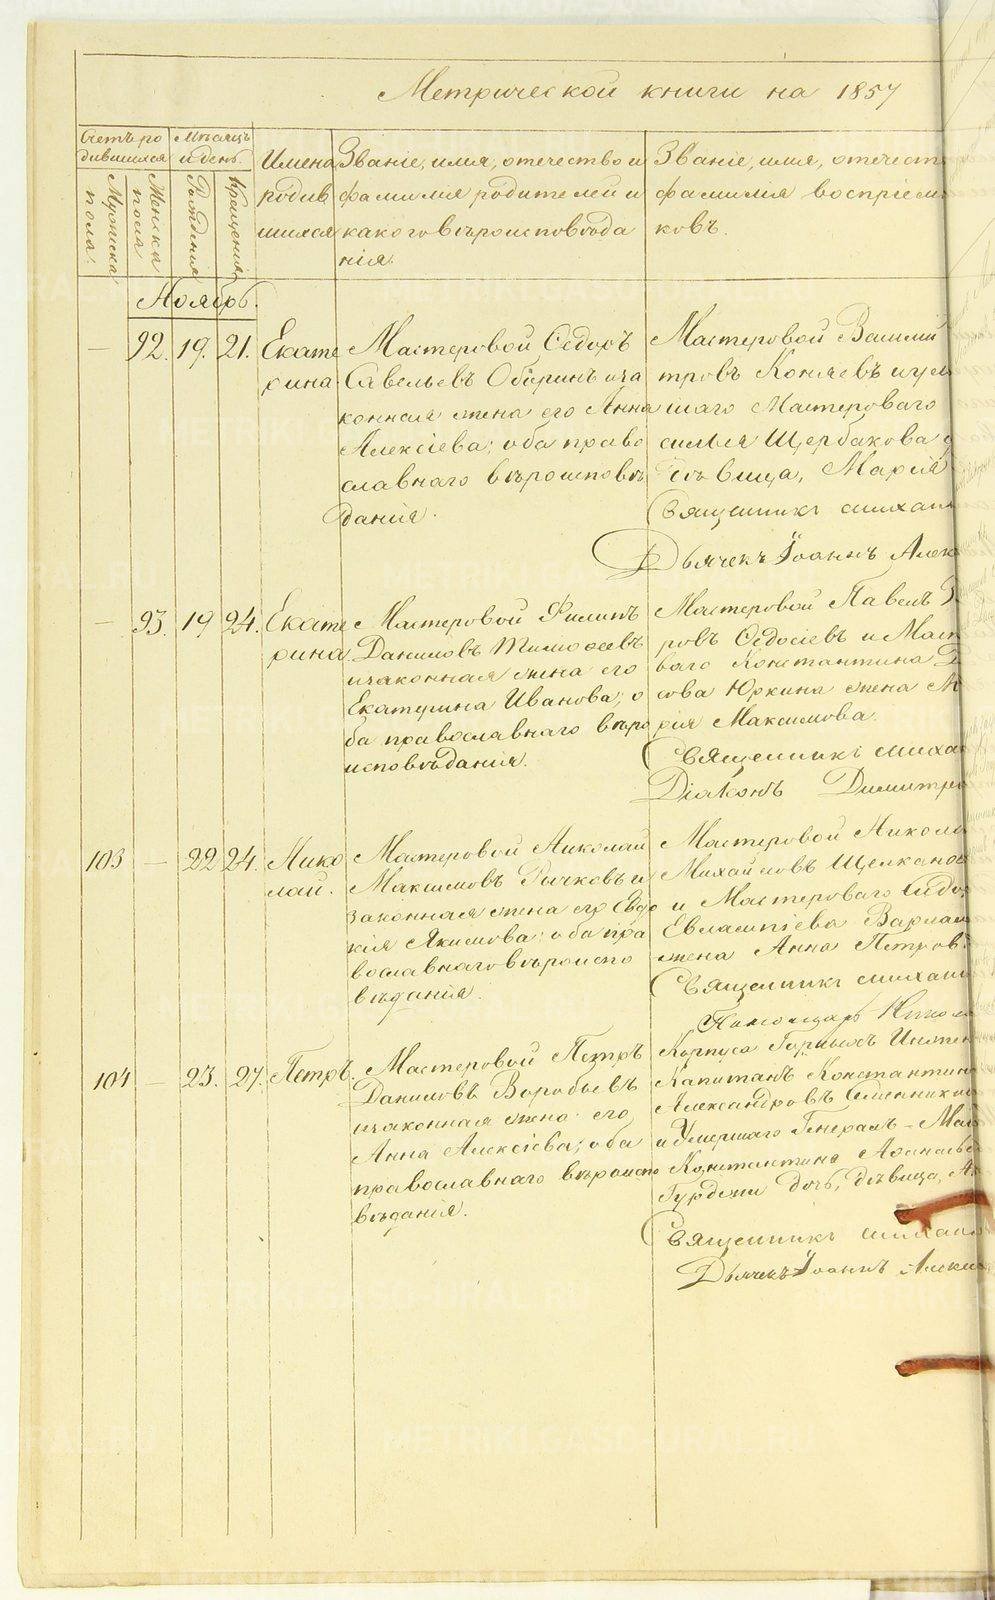 Метрической книги на 1857
Счетъ ро
дившихся
Мужеска
пола.
Женска
пола
Мѣсяцъ
и день.
Рожденія
Крещенія
Имена
родив
шихся
Званіе, имя, отечество и
фамилія родителей и
какого вѣроисповѣда
нія.
Званіе, имя, отечест
фамилія воспріем
ковъ.
Ноябрь.
— 92. 19. 21. Екате
рина.
Мастеровой Ѳедоръ
Савельевъ и за
конная жена его Анна
Алексіева; оба право
славнаго вѣроисповѣ
данія.
Мастеровой Васили
тровъ Коняевъ и уме
шаго Мастероваго
силья Щербакова д
дѣвица, Марія
Священникъ Михаи
Дьячекъ Іоаннъ Алекс
— 93. 19 24. Екате
рина
Мастеровой Филипъ
Даниловъ Тимофеевъ
и законная жена его
Екатерина Иванова; о
ба православнаго вѣро
исповѣданія.
Мастеровой Павелъ
ровъ Ѳедосіевъ и Маст
ваго Константина
сова Юркина жена М
рія Максимова.
Священникъ Михаи
Діаконъ Димитрі
103 — 22 24. Нико
лай.
Мастеровой Николай
Максимовъ Рычковъ и
законная жена его Евдо
кія Якимова; оба пра
вославнаго вѣроиспо
вѣданія.
Мастеровой Никола
Михайловъ Щелканов
и Мастероваго
Евлампіева Варлам
жена Анна Петров
Священникъ Михаи
Пономарь Никола
104 — 23. 27. Петръ.
Мастеровой Петръ
Даниловъ Воробьевъ
и законная жена его
Анна Алексіева; оба
православнаго вѣроиспо
вѣданія.
Корпуса Горныхъ Инжен
Капитанъ Константинъ
Александровъ
и Умершаго Генералъ-Маі
Константина Аѳанасье
дочь, дѣвица, А
Священникъ Михаи
Дьячекъ Іоаннъ Алекс
METRIKI.GASO-URAL.RU